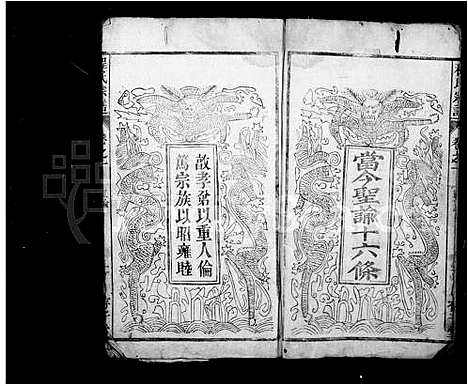 當今聖諭十六條
敦孝弟以重人倫
篤宗族以昭雍睦